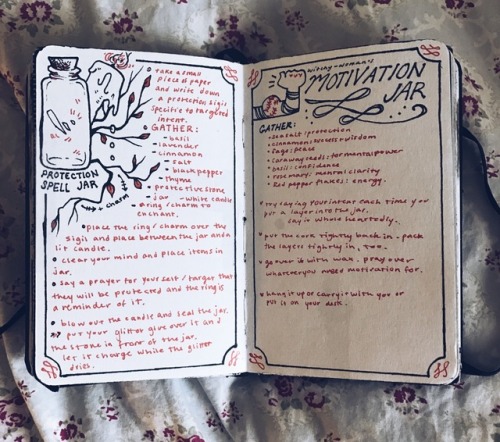 • take a small
piece of paper
and write down
a protection sigil
specific to targeted
intent.
GATHER:
- basil
- lavender
- cinnamon
- salt
- black pepper
- thyme
• protective stone
- jar - white candle
• a ring/charm to
enchant.
PROTECTION
SPELL JAR
+ charm
• place the ring/charm over the
sigil and place between the jar and a
lit candle.
• clear your mind and place items in
jar.
• say a prayer for your self/target that
they will be protected and the ring is
a reminder of it.
• blow out the candle and seal the jar.
put your glitter glue over it and
the stone in front of the jar.
let it charge while the glitter
dries.
witchy-woman's
MOTIVATION
JAR
GATHER:
- sea salt: protection
- cinnamon: success + wisdom
- sage: peace
- caraway seeds: for mental power
- basil: confidence
- rosemary: mental clarity
- Red pepper flakes: energy.
• try saying your intent each time you
put a layer into the jar.
say it whole heartedly.
• put the cork tightly back in - pack
the layers tightly in, too.
• go over it with wax. pray over
whatever you need motivation for.
• hang it up or carry it with you or
put is on your desk.